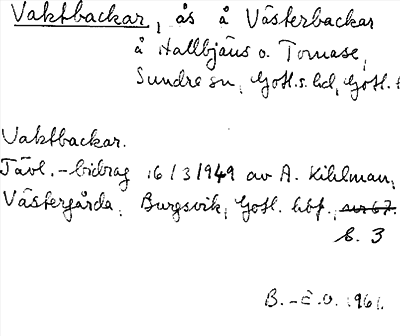 Vaktbackar, ås å Västerbackar
å Hallbjäns o. Tomase,
Sundre sn, Gotl.s. hd, Gotl. l
Vaktbackar.
Tävl.-bidrag 16/3 1949 av A. Kihlman,
Västergårda, Burgsvik, Gotl. hbf.,
s. 3
B.-E.O. 1961.